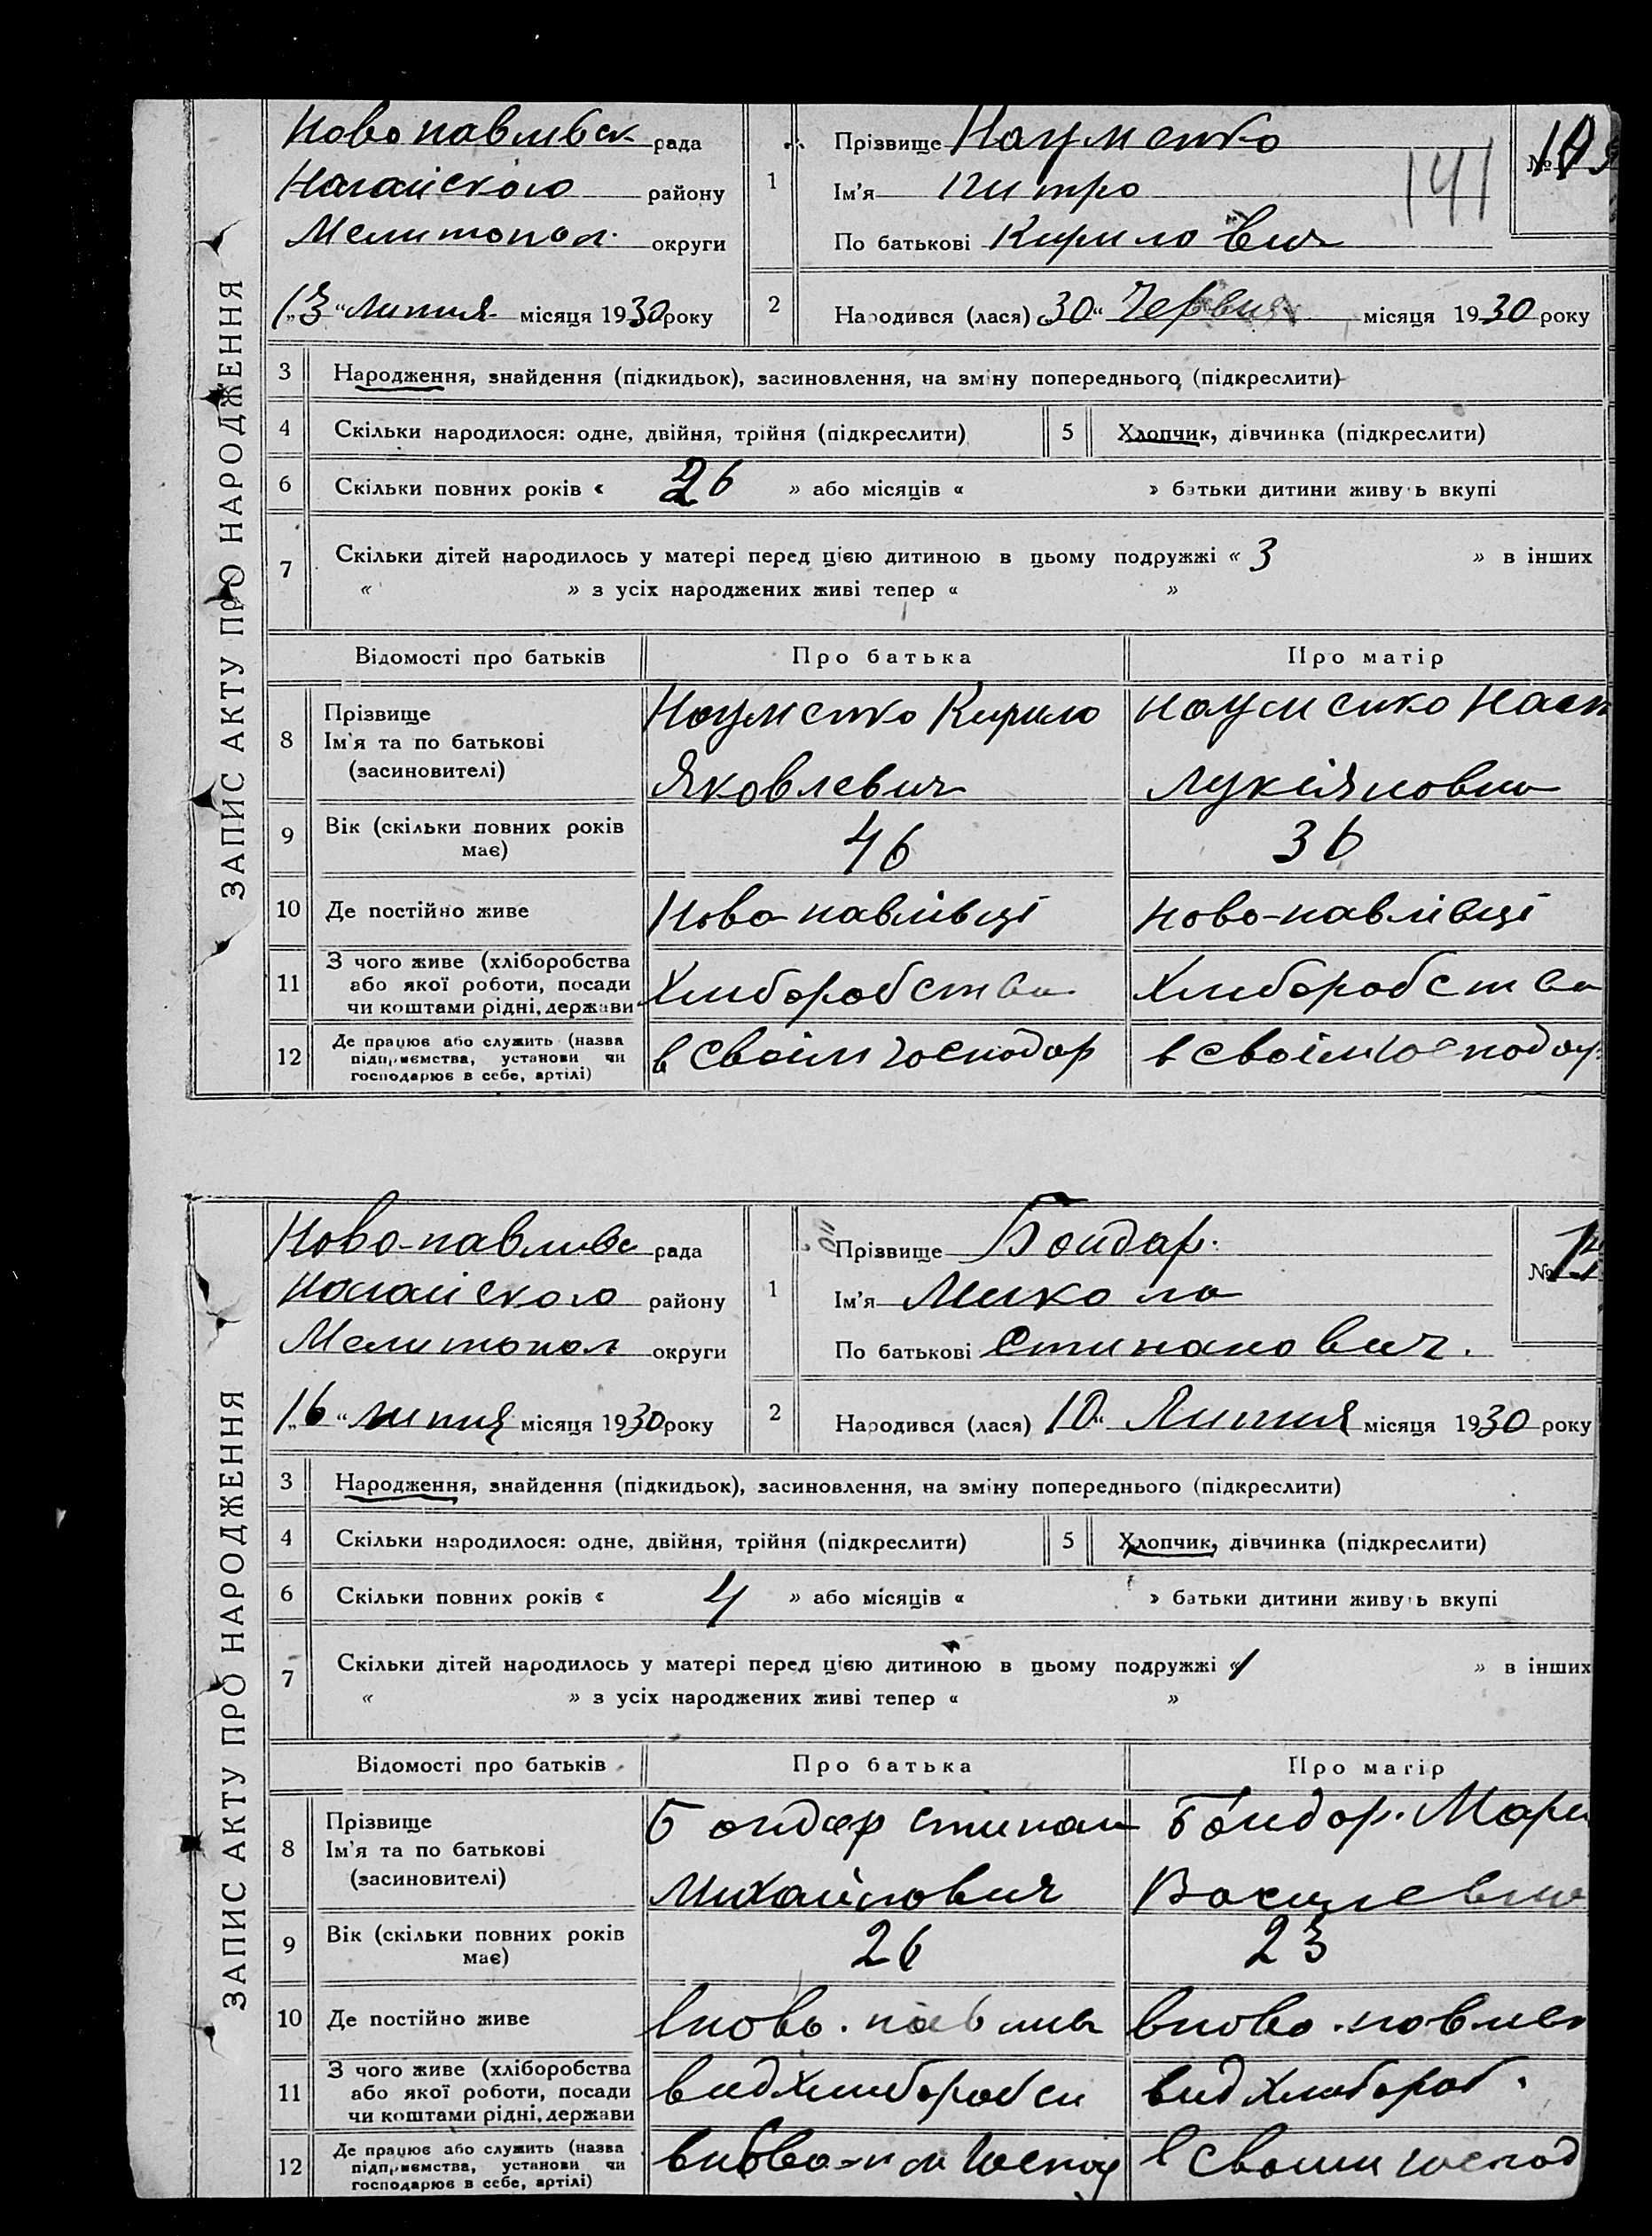 ЗАПИС АКТУ ПРО НАРОДЖЕННЯ
Новопавлівск рада
Нагайского району
Мелитопол. округи
„13“ Липня місяця 1930 року
1 Прізвище Науменко
Ім'я Питро
По батькові Кирилович
141
№
2 Народився (лася) „30“ Червня місяця 1930 року
3 Народження, знайдення (підкидьок), засиновлення, на зміну попереднього (підкреслити)
4 Скільки народилося: одне, двійня, трійня (підкреслити) 5 Хлопчик, дівчинка (підкреслити)
6 Скільки повних років « 26 » або місяців « » батьки дитини живуть вкупі
7 Скільки дітей народилось у матері перед цією дитиною в цьому подружжі « 3 » в інших
« » з усіх народжених живі тепер « »
Відомості про батьків Про батька Про матір
8 Прізвище
Ім'я та по батькові
(засиновителі)
Науменко Кирило
Яковлевич
Науменко Наст
Лукіяновна
9 Вік (скільки повних років
має)
46 36
10 Де постійно живе Ново-павлівці Ново-павлівці
11 З чого живе (хліборобства
або якої роботи, посади
чи коштами рідні, держави
Хлиборобства Хлиборобства
12 Де працює або служить (назва
підприємства, установи чи
господарює в себе, артілі)
в своім господар в своім господар
ЗАПИС АКТУ ПРО НАРОДЖЕННЯ
Ново-павливс рада
Нагайского району
Мелитопол округи
„16“ липня місяця 1930 року
1 Прізвище Бондар.
Ім'я Микола
По батькові Стипанович.
№
2 Народився (лася) „10“ Липня місяця 1930 року
3 Народження, знайдення (підкидьок), засиновлення, на зміну попереднього (підкреслити)
4 Скільки народилося: одне, двійня, трійня (підкреслити) 5 Хлопчик, дівчинка (підкреслити)
6 Скільки повних років « 4 » або місяців « » батьки дитини живуть вкупі
7 Скільки дітей народилось у матері перед цією дитиною в цьому подружжі « 1 » в інших
« » з усіх народжених живі тепер « »
Відомості про батьків Про батька Про матір
8 Прізвище
Ім'я та по батькові
(засиновителі)
Бондар Стипан
Михайлович
Бондар. Мари
Василевна
9 Вік (скільки повних років
має)
26 23
10 Де постійно живе вново. павлив вново. павлив
11 З чого живе (хліборобства
або якої роботи, посади
чи коштами рідні, держави
вид хлиборобси вид хлебороб.
12 Де працює або служить (назва
підприємства, установи чи
господарює в себе, артілі)
в своим господ